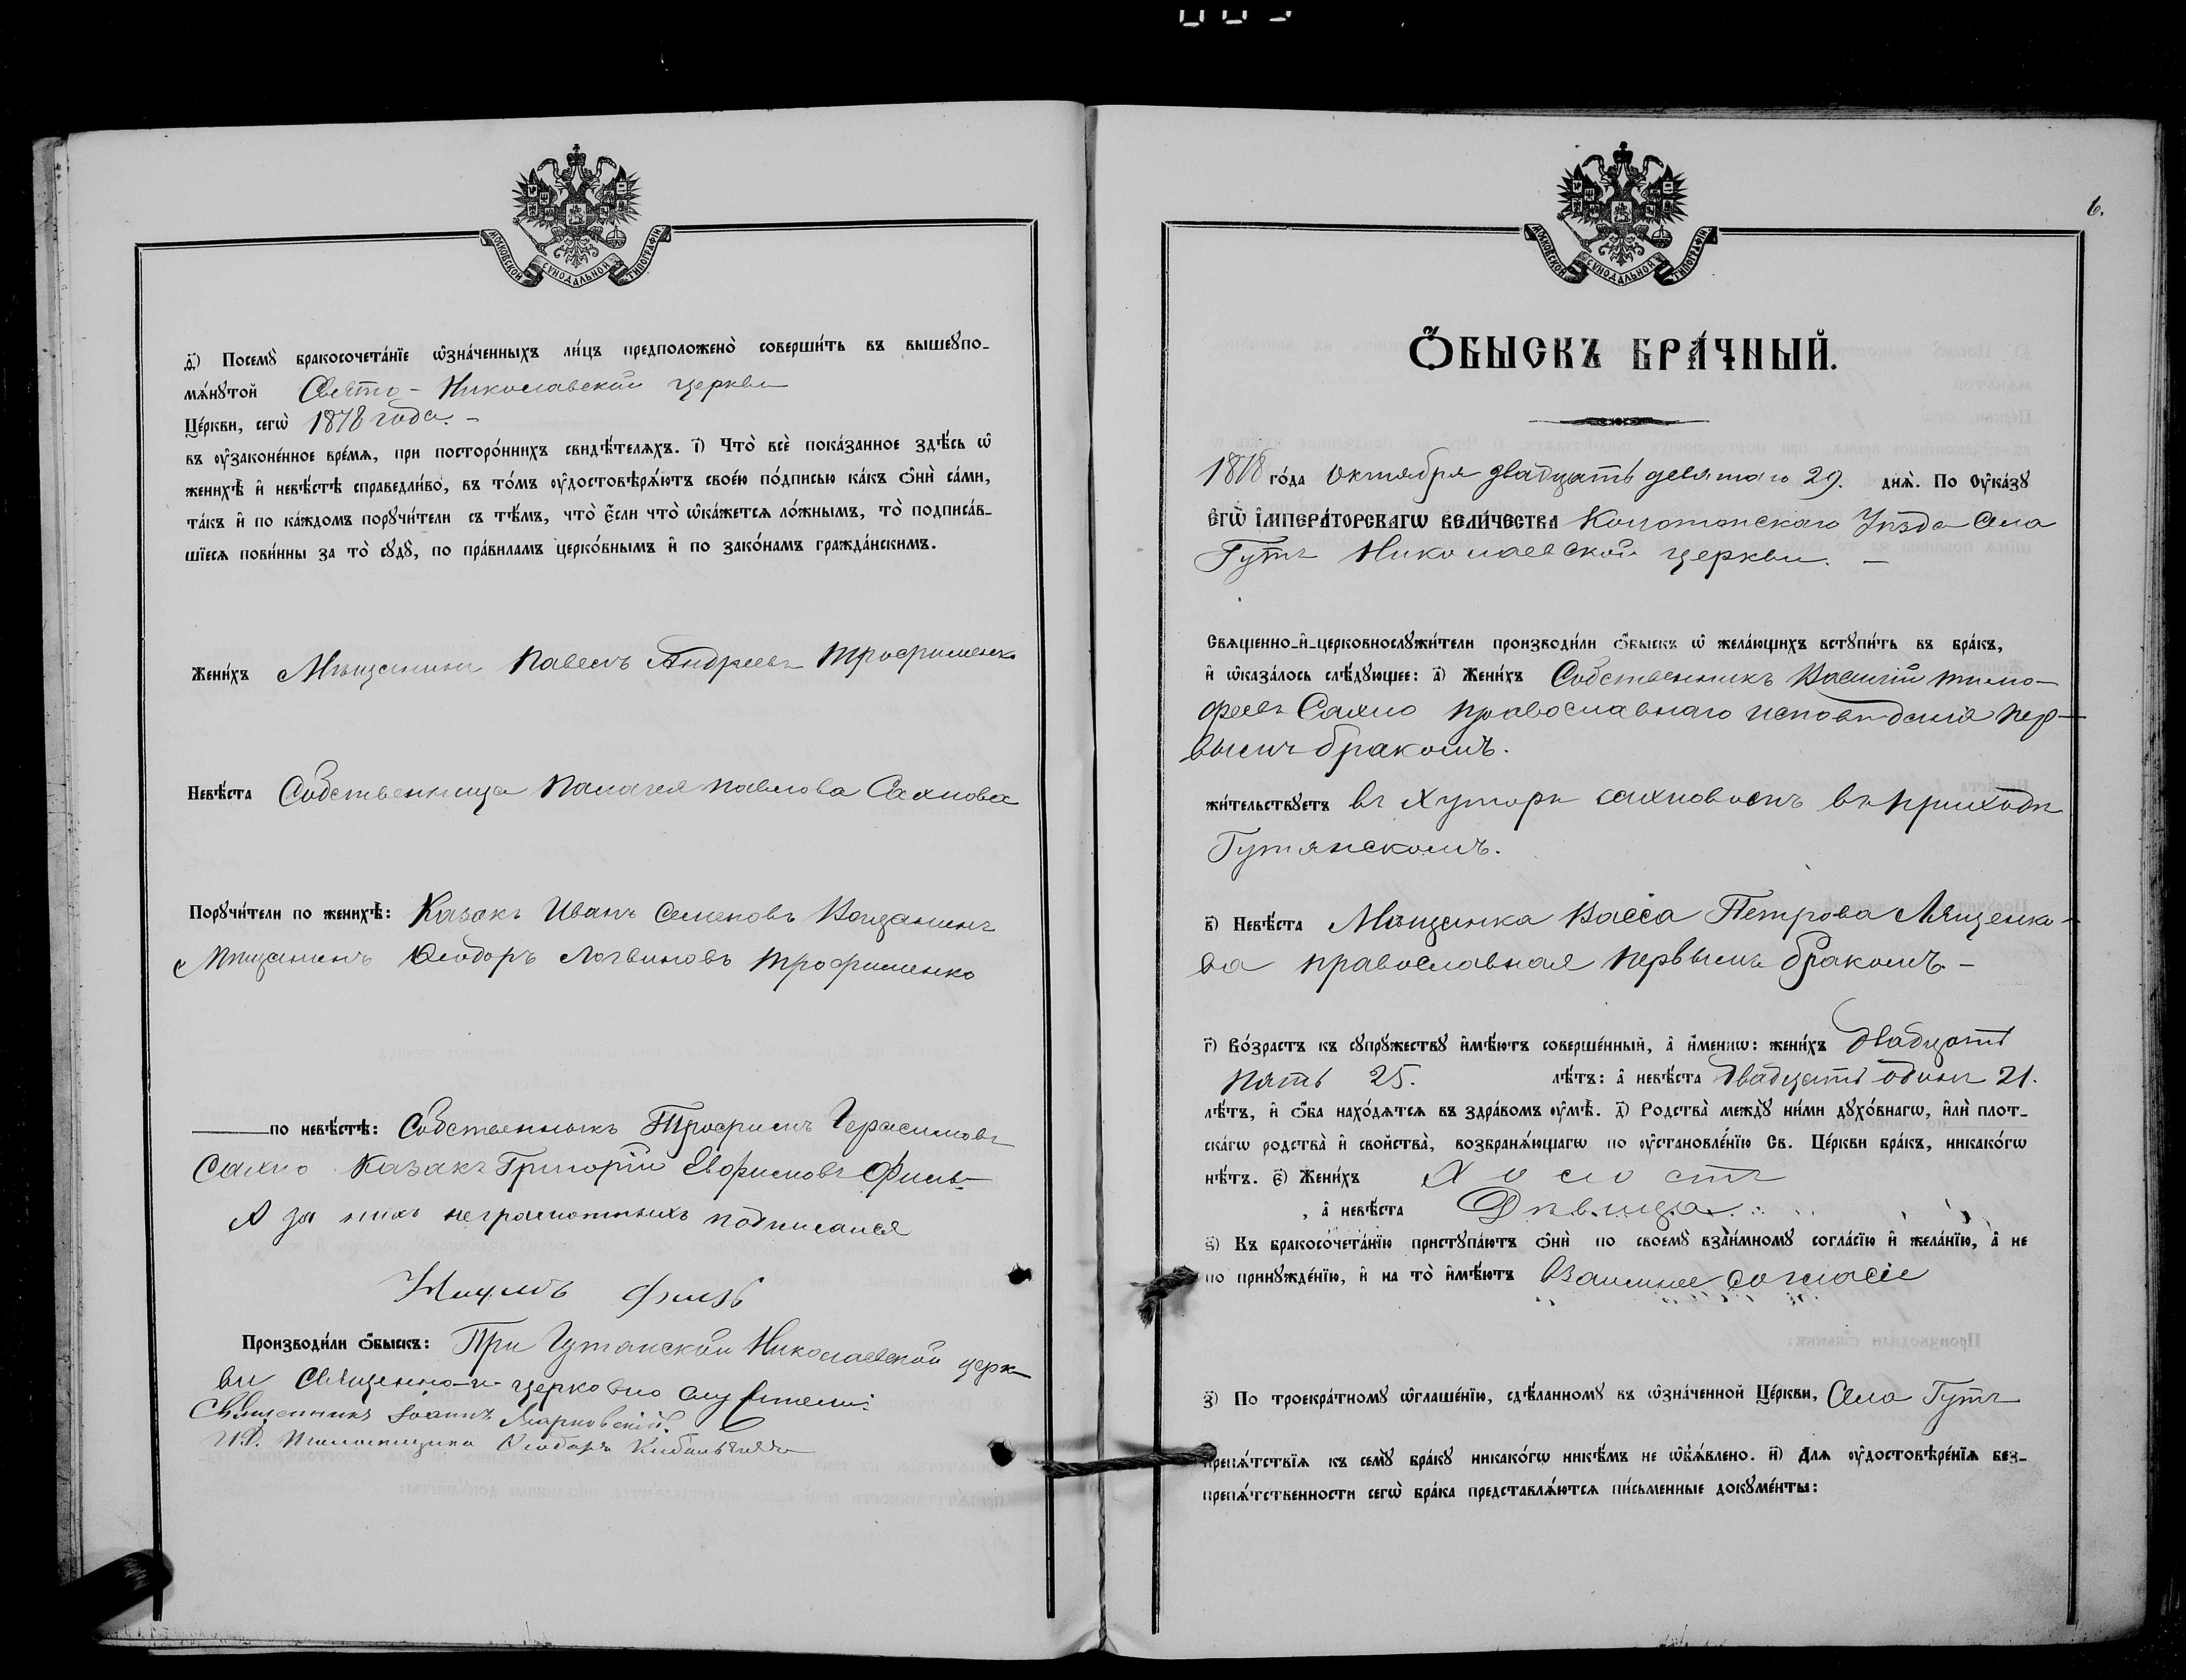 МОСКОВСКОЙ СѴНОДАЛЬНОЙ ТИПОГРАФІИ
д҃і) Посемꙋ̀ бракосочета́нїе ѡ҆зна́ченныхъ ли́цъ предположено̀ соверши́ть въ вышеꙋпо-
мѧ́нꙋтой Свято-Николаевской церкви
Це́ркви, сегѡ̀ 1878 года. -
въ ᲂу҆законе́нное вре́мѧ, при посторо́ннихъ свидѣ́телѧхъ. і҃) Что̀ всѐ пока́занное здѣ́сь ѡ҆
женихѣ̀ и҆ невѣ́стѣ справедли́во, въ то́мъ ᲂу҆достовѣрѧ́ютъ свое́ю по́дписью ка́къ ѻ҆нѝ са́ми,
та́къ и҆ по ка́ждомъ порꙋчи́тели съ тѣ́мъ, что̀ є҆́сли что̀ ѡ҆ка́жетсѧ ло́жнымъ, то̀ подписа́в-
шїесѧ пови́нны за то̀ сꙋдꙋ̀, по пра́виламъ церко́внымъ и҆ по зако́намъ гражда́нскимъ.
Жени́хъ Мѣщанинъ Павелъ Андреевъ Трофименко
Невѣ́ста Собственница Палагея Павлова Сахнова
Порꙋчи́тели по женихѣ̀: Казакъ Иванъ Семеновъ
Мѣщанинъ Ѳеодоръ Логвиновъ Трофименко
по невѣ́стѣ: Собственникъ Трофимъ Герасимовъ
Сахно Казакъ Григорій Евфимовъ Филь
А за нихъ неграмотныхъ подписался
Наумъ Филь
Производи́ли ѻ҆́быскъ: При Гутянской Николаевской церк-
ви Священно-и-церковно служители:
Священникъ Іоаннъ Марковскій.
И.Д. Псаломщика Ѳеодоръ
6.
МОСКОВСКОЙ СѴНОДАЛЬНОЙ ТИПОГРАФІИ
Ѻ҆́БЫСКЪ БРА́ЧНЫЙ.
1878 го́да Октября двадцать девятаго 29. днѧ̀. По Оу҆ка́зꙋ
Є҆ГѠ̀ І҆МПЕРА́ТОРСКАГѠ ВЕЛИ́ЧЕСТВА Конотопскаго Уѣзда Села
Гутъ Николаевской церкви. -
Свѧщенно-и҆-церковнослꙋжи́тели производи́ли ѻ҆́быскъ ѡ҆ жела́ющихъ встꙋпи́ть въ бра́къ,
и҆ ѡ҆каза́лось слѣ́дꙋющее: а҃) Жени́хъ Собственникъ Василій Тимо-
феевъ Сахно православнаго исповѣданія пер-
вымъ бракомъ.
жи́тельствꙋетъ въ Хуторѣ Сахновомъ въ приходѣ
Гутянскомъ.
в҃) Невѣ́ста Мѣщанка Васса Петрова Лященко-
ва православная первымъ бракомъ. -
г҃) Во́зрастъ къ сꙋпрꙋ́жествꙋ и҆мѣ́ютъ соверше́нный, а҆ и҆́менно: жени́хъ двадцать
пять 25. лѣ́тъ: а҆ невѣ́ста двадцать одинъ 21.
лѣ́тъ, и҆ ѻ҆́ба нахо́дѧтсѧ въ здра́вомъ ᲂу҆мѣ̀. д҃) Родства̀ междꙋ̀ ни́ми дꙋхо́внагѡ, и҆лѝ плот-
ска́гѡ родства̀ и҆ свойства̀, возбранѧ́ющагѡ по ᲂу҆становле́нїю Св. Це́ркви бра́къ, никако́гѡ
нѣ́тъ. є҃) Жени́хъ Холостъ
, а҆ невѣ́ста Дѣвица.
ѕ҃) Къ бракосочета́нїю пристꙋпа́ютъ ѻ҆нѝ по своемꙋ̀ взаи́мномꙋ согла́сїю и҆ жела́нїю, а҆ не
по принꙋжде́нїю, и҆ на то̀ и҆мѣ́ютъ Взаимное согласіе
з҃) По троекра́тномꙋ ѡ҆глаше́нїю, сдѣ́ланномꙋ въ ѡ҆зна́ченной Це́ркви, Села Гутъ
препѧ́тствїѧ къ семꙋ̀ бра́кꙋ никако́гѡ никѣ́мъ не ѡ҆б̾ѧ́влено. и҃) Длѧ ᲂу҆достовѣре́нїѧ без-
препѧ́тственности сегѡ̀ бра́ка представлѧ́ютсѧ пи́сьменные докꙋме́нты: